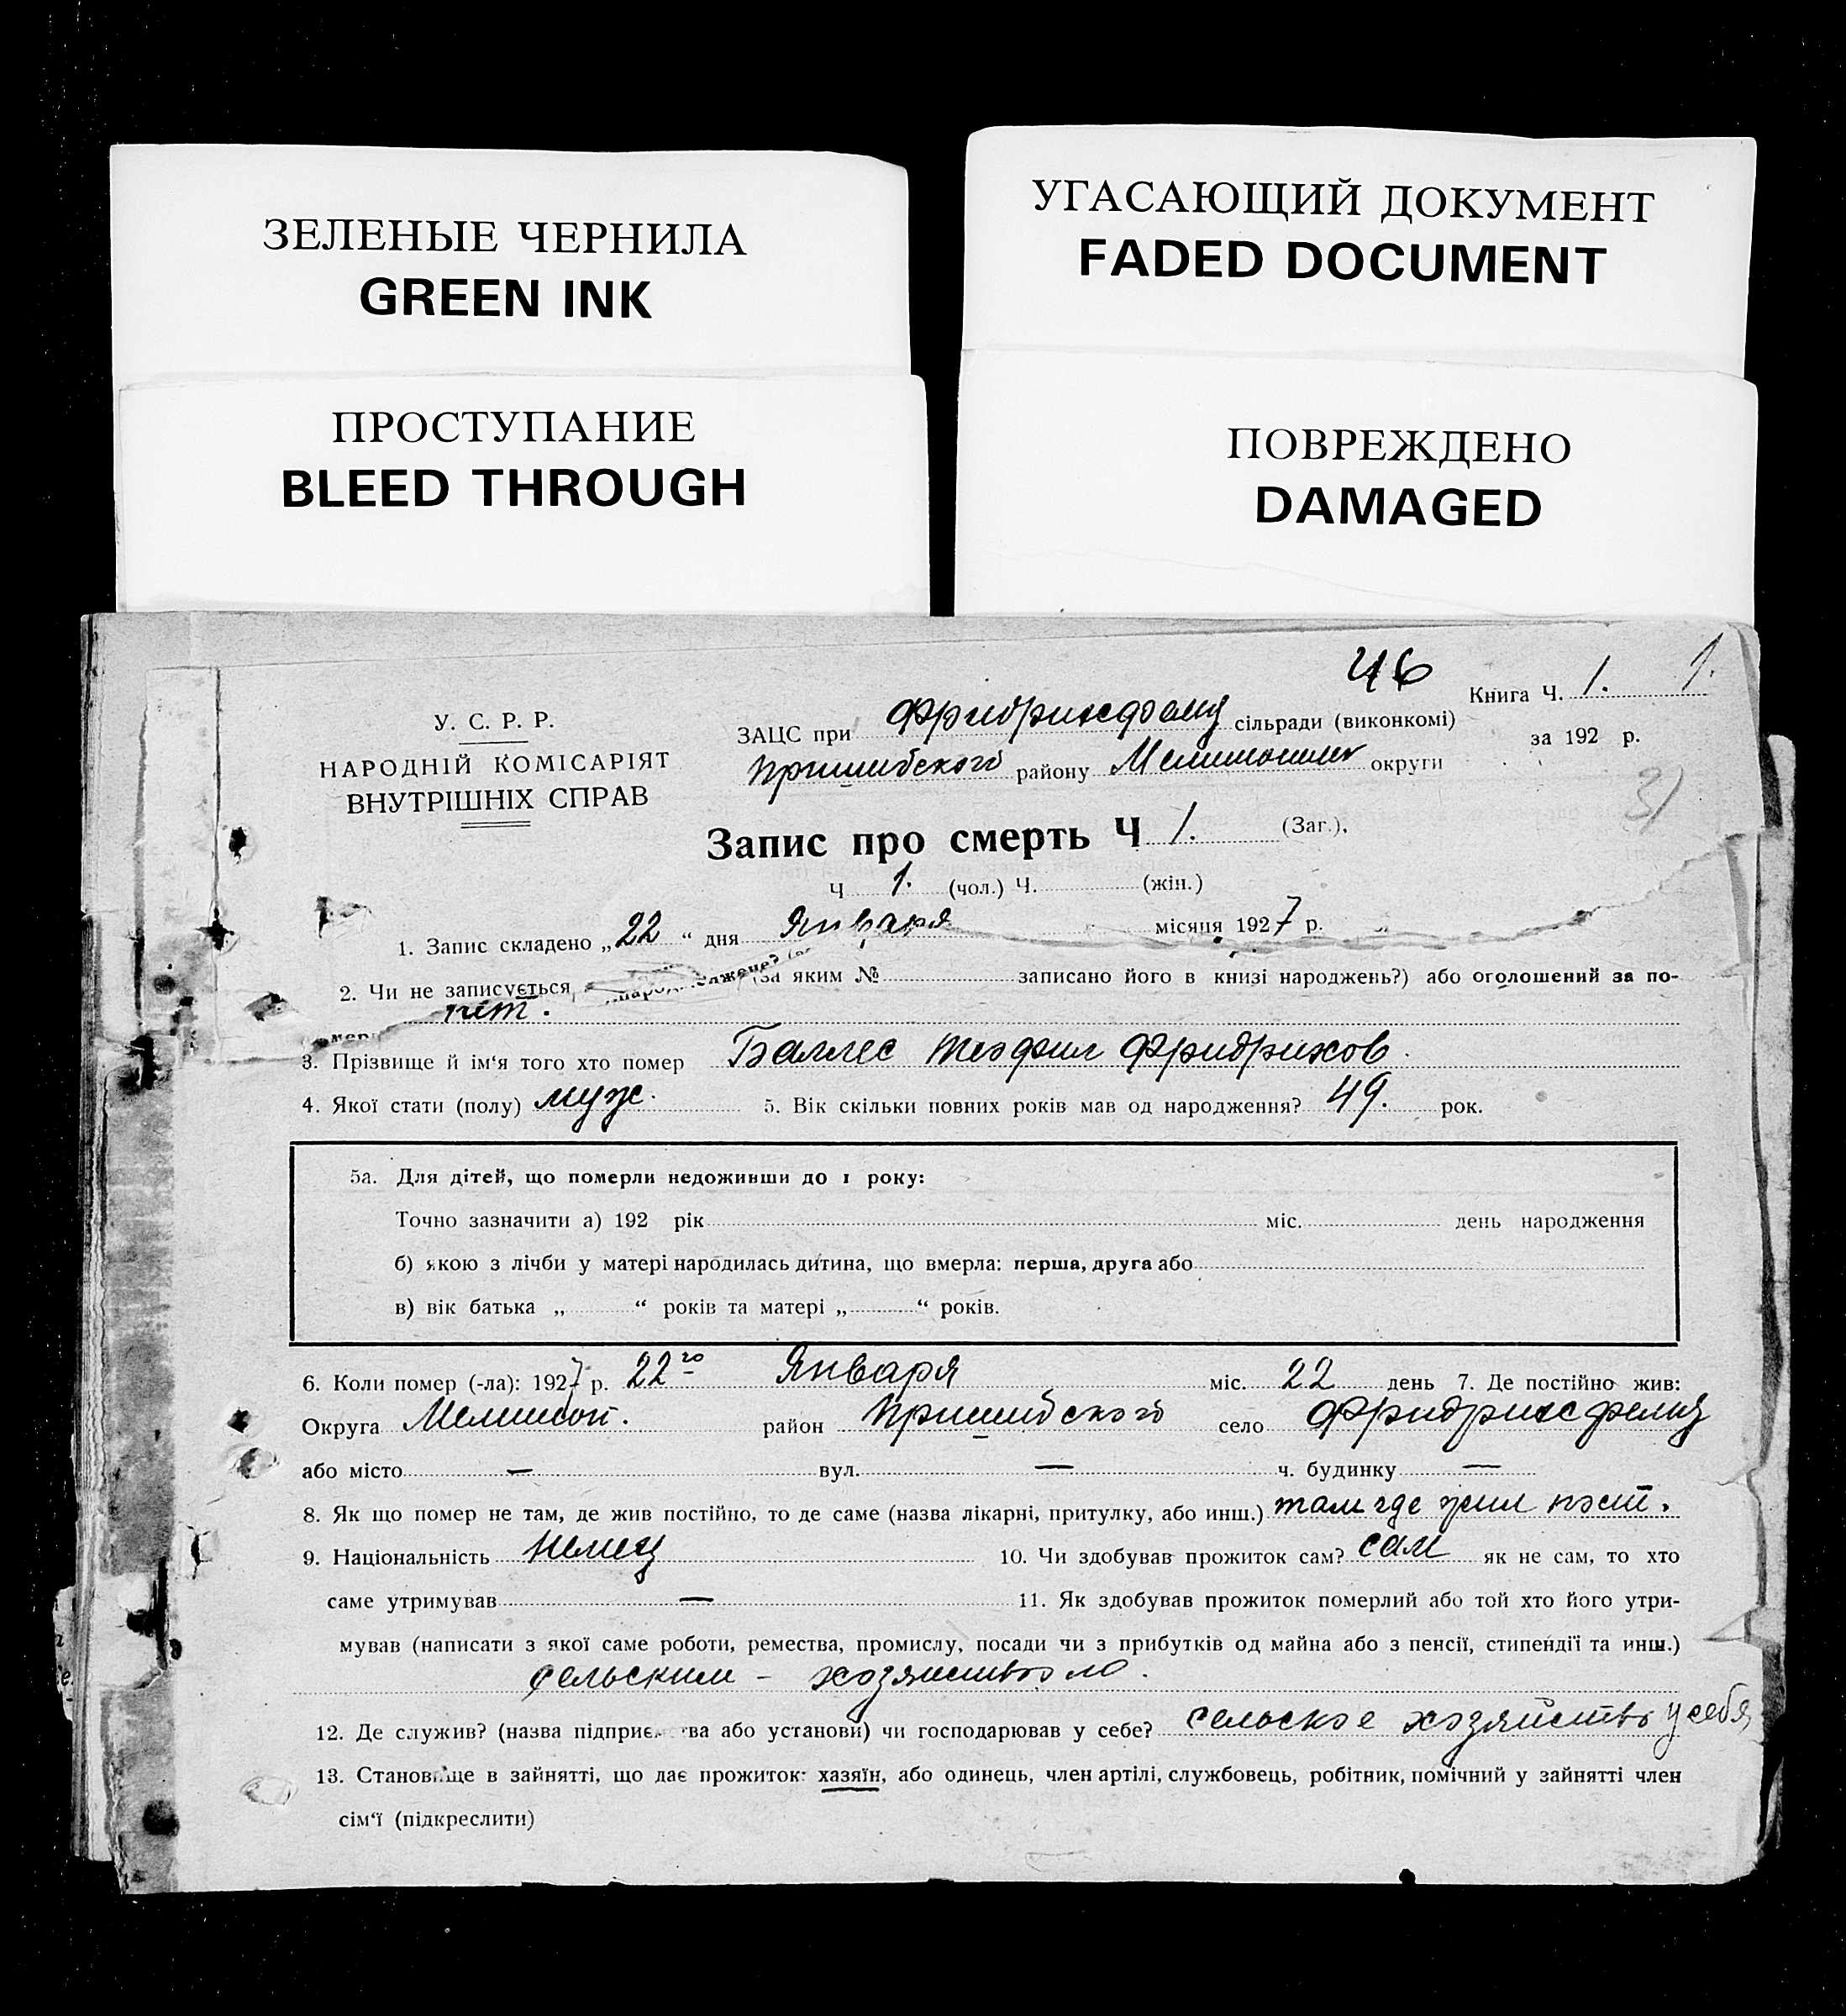 ЗЕЛЕНЫЕ ЧЕРНИЛА
GREEN INK
УГАСАЮЩИЙ ДОКУМЕНТ
FADED DOCUMENT
ПРОСТУПАНИЕ
BLEED THROUGH
ПОВРЕЖДЕНО
DAMAGED
46
Книга Ч. 1. 1.
У. С. Р. Р.
НАРОДНІЙ КОМІСАРІЯТ
ВНУТРІШНІХ СПРАВ
ЗАЦС при сільради (виконкомі)
за 192 р.
Пришибского району округи
31
Запис про смерть Ч 1. (Заг.).
Ч 1. (чол.) Ч. (жін.)
1. Запис складено „22“ дня Января місяця 1927 р.
2. Чи не записується, (за яким № записано його в книзі народжень?) або оголошений за по-
нет.
3. Прізвище й ім‘я того хто помер Баллес Теофил Фридрихов.
4. Якої стати (полу) муж. 5. Вік скільки повних років мав од народження? 49. рок.
5а. Для дітей, що померли недоживши до 1 року:
Точно зазначити а) 192 рік міс. день народження
б) якою з лічби у матері народилась дитина, що вмерла: перша, друга або
в) вік батька „ “ років та матері „ “ років.
6. Коли помер (-ла): 1927 р. 22го Января міс. 22 день 7. Де постійно жив:
Округа Мелитоп. район Пришибского село Фридрихсфельд
або місто — вул. — ч. будинку —
8. Як що помер не там, де жив постійно, то де саме (назва лікарні, притулку, або инш.) там где жил пост.
9. Національність немец 10. Чи здобував прожиток сам? сам як не сам, то хто
саме утримував — 11. Як здобував прожиток померлий або той хто його утри-
мував (написати з якої саме роботи, ремества, промислу, посади чи з прибутків од майна або з пенсії, стипендії та инш.)
сельским - хозяйством.
12. Де служив? (назва підприє ва або установи) чи господарював у себе? сельское хозяйство у себя
13. Становище в зайнятті, що дає прожиток: хазяїн, або одинець, член артілі, службовець, робітник, помічний у зайнятті член
сім‘ї (підкреслити)